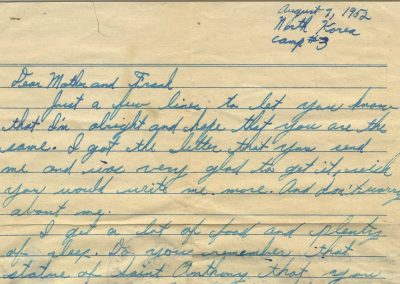 August 7, 1952
North Korea
Camp #3
Dear Mother and Frank
Just a few lines to let you know
that I'm alright and hope that you are the
same. I got the letter that you send
me and was very glad to get it, wish
you would write me more. And don't worry
about me.
I get a lot of food and plenty
of sleep. Do you remember that
statue of Saint Anthony that you